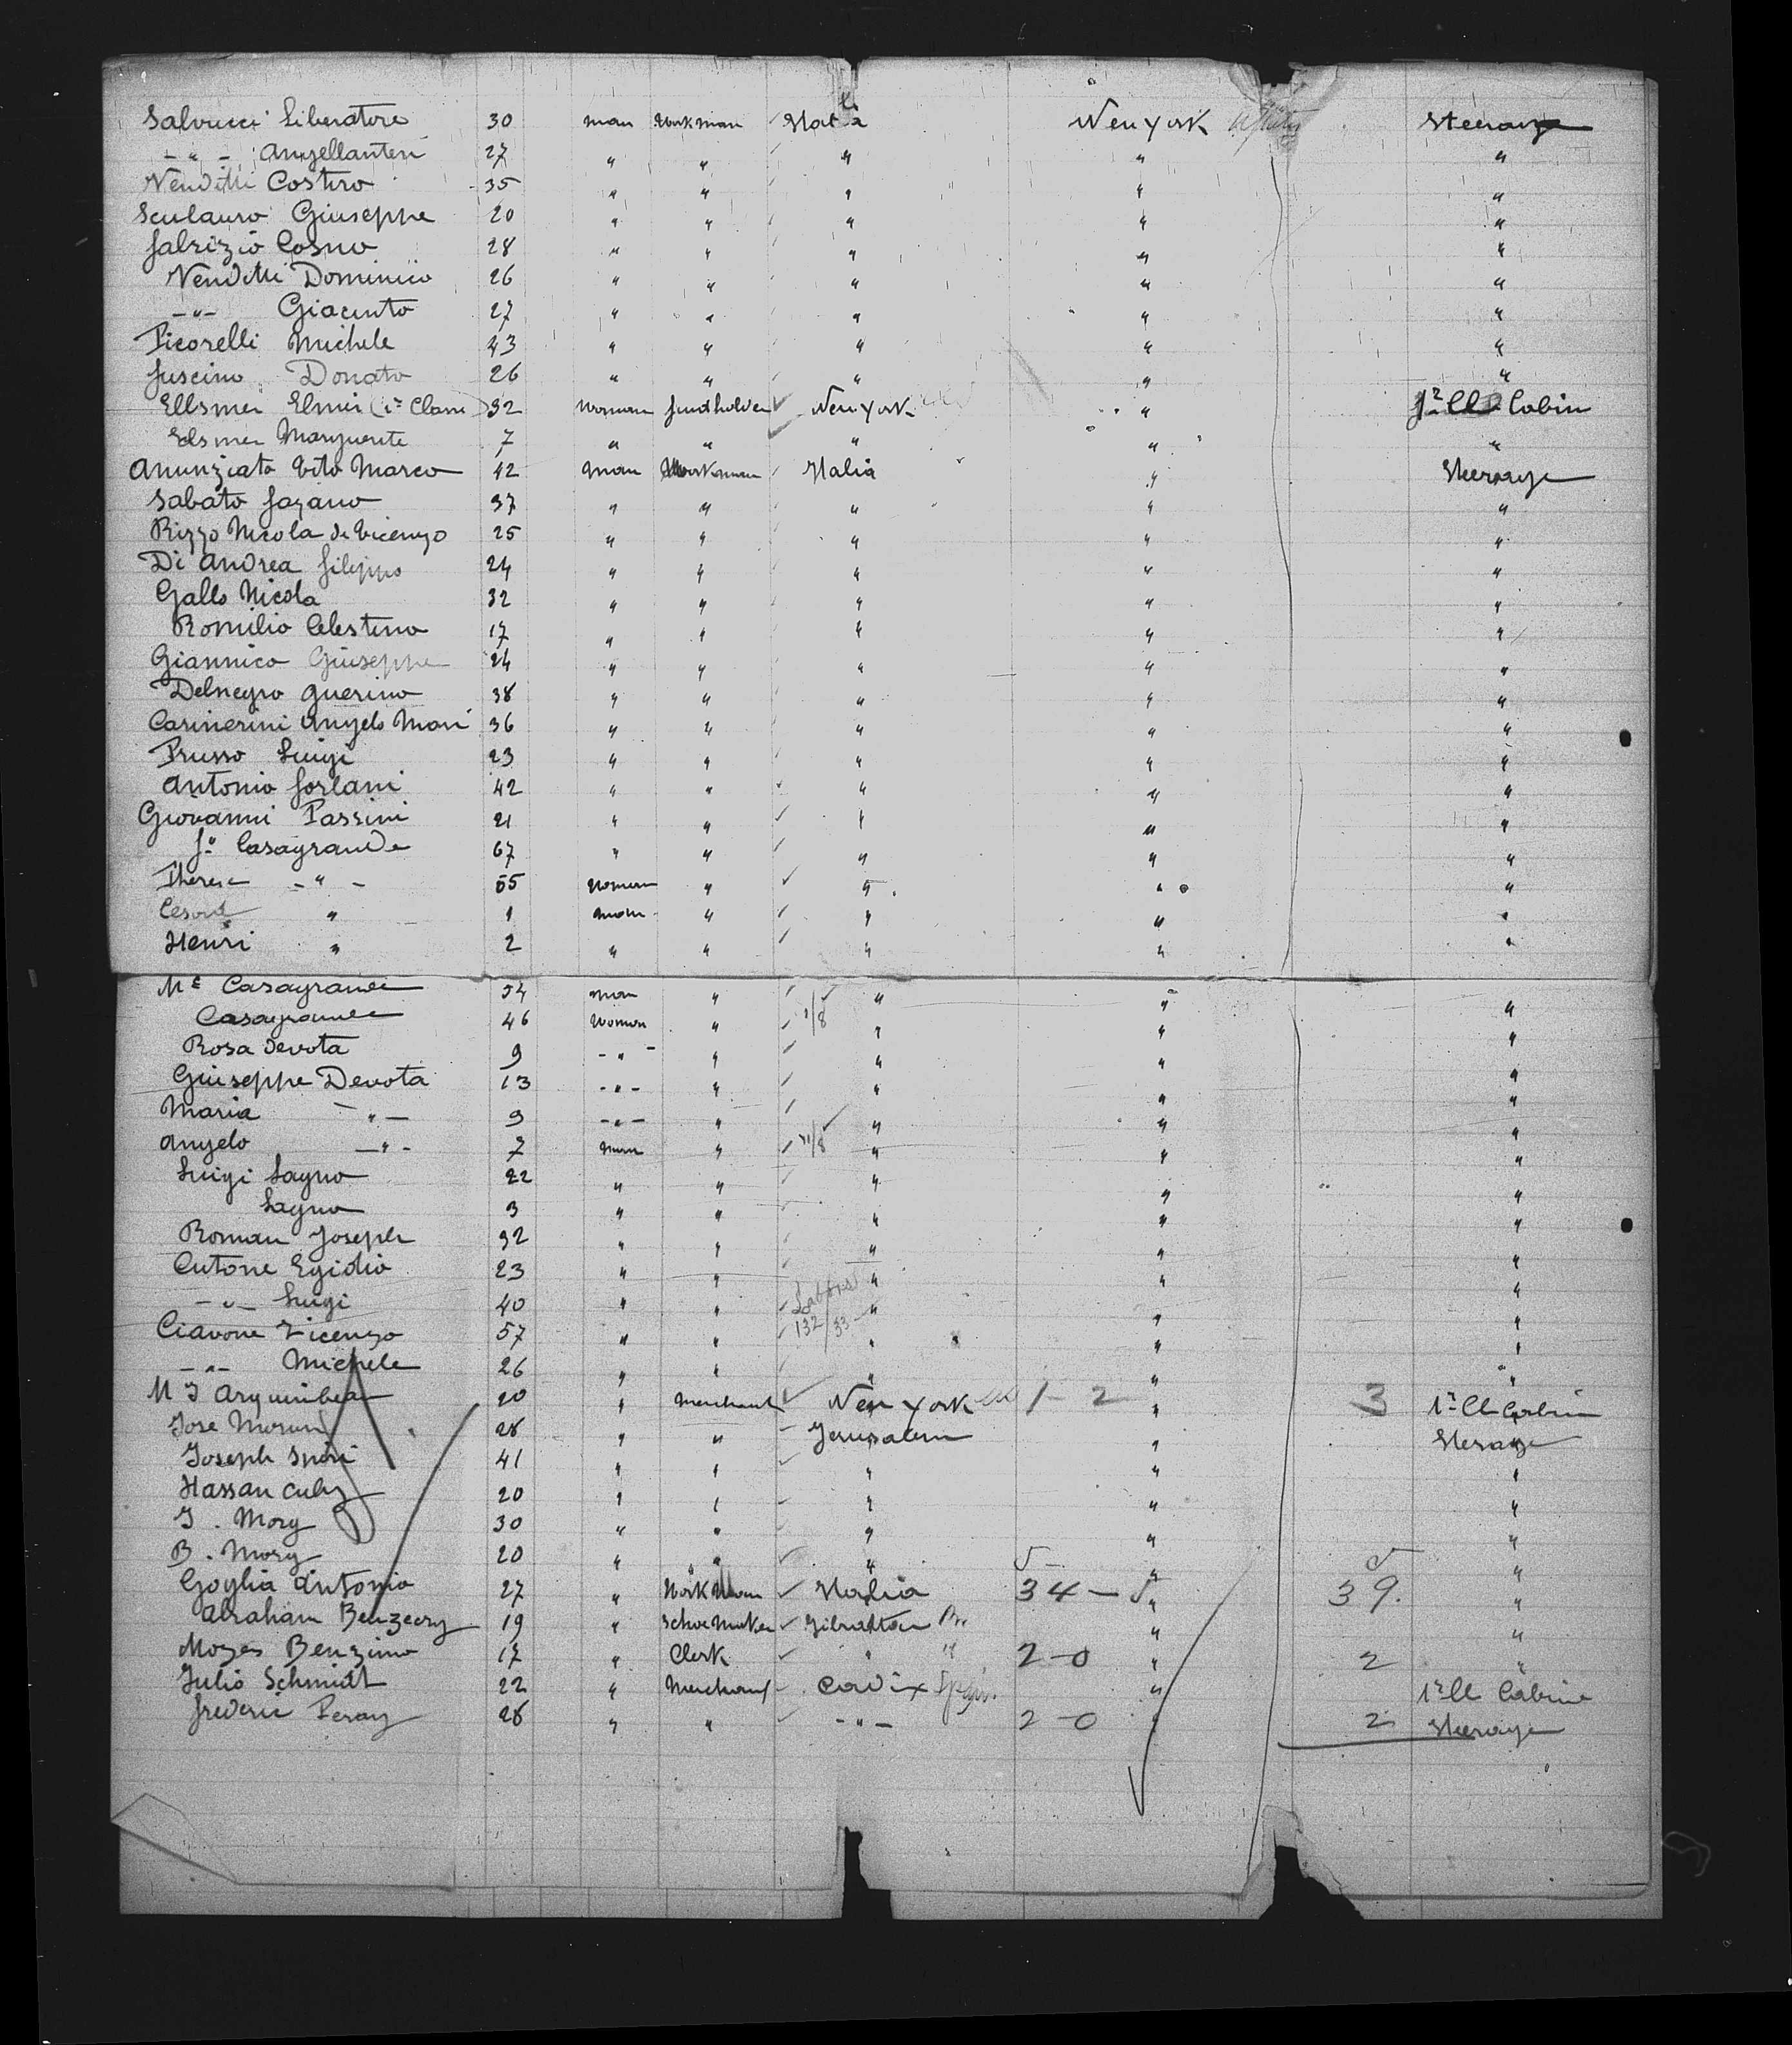 Salvucci Liberatore 30 man Workman Italia New York Steerage
- " - Angellanteri 27 " " " " "
Venditti Costiro 35 " " " " "
Sculauro Giuseppe 20 " " " " "
fabrizio Cosmo 28 " " " " "
Venditti Dominico 26 " " " " "
- " - Giacinto 27 " " " " "
Picorelli Michele 43 " " " " "
fuscino Donato 26 " " " " "
Ellsmer Elmer (1r Class) 32 woman fundholder New York " 1r Cl Cabin
Elsmer Marguerite 7 " " " " "
Anunziato Vito Marco 42 man Workman Italia " Steerage
Sabato fazano 37 " " " " "
Rizzo Nicola di Vicenzo 25 " " " " "
Di Andrea filippo 24 " " " " "
Gallo Nicola 32 " " " " "
Romilio Celestino 17 " " " " "
Giannico Giuseppe 24 " " " " "
Delnegro Guerino 38 " " " " "
Carinerini Angelo Mari 36 " " " " "
Prusso Luigi 23 " " " " "
Antonio forlani 42 " " " " "
Giovanni Passini 21 " " " " "
Casagrande 67 " " " " "
Therese - " - 65 woman " " " "
1 man " " " "
Henri " 2 " " " " "
Me Casagrande 54 man " " " "
Casagrande 46 woman " " " "
Rosa Devota 9 - " - " " " "
Giuseppe Devota 13 - " - " " " "
Maria - " - 9 - " - " " " "
Angelo - " - 7 man " " " "
Luigi Lagno 22 " " " " "
Lagno 3 " " " " "
Roman Joseph 32 " " " " "
Cutone Egidio 23 " " " " "
- " - Luigi 40 " " " " "
Ciavone Vicenzo 57 " " 132/33 " " "
- " - Michele 26 " " " " "
20 " Merchant New York 1 - 2 " 3 1r Cl Cabin
Jose 28 " " Jerusalem " Sterage
Joseph 41 " " " " "
Hassan 20 " " " " "
J. Mory 30 " " " " "
B. Mory 20 " " " " "
Goglia Antonio 27 " Workman Italia 34 - 5 " 39. "
Abraham Benzecry 19 " Schoemaker Gibraltar " "
Mozes Benzimo 17 " Clerk " " 2 - 0 " 2 "
Julio Schmidt 22 " Merchant Cadix Spain " 1r Cl Cabine
frederic Peray 28 " " - " - 2 - 0 " 2 Steerage